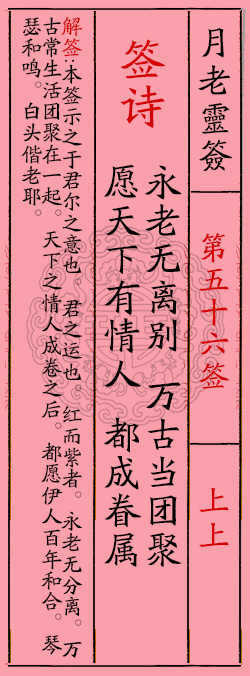 月老靈簽
第五十六签
上上
签诗
永老无离别 万古当团聚
愿天下有情人 都成眷属
解签:本签示之于君尔之意也。君之运也。红而紫者。永老无分离。万
古常生活团聚在一起。天下之情人成卷之后。都愿伊人百年和合。琴
瑟和鸣。白头偕老耶。